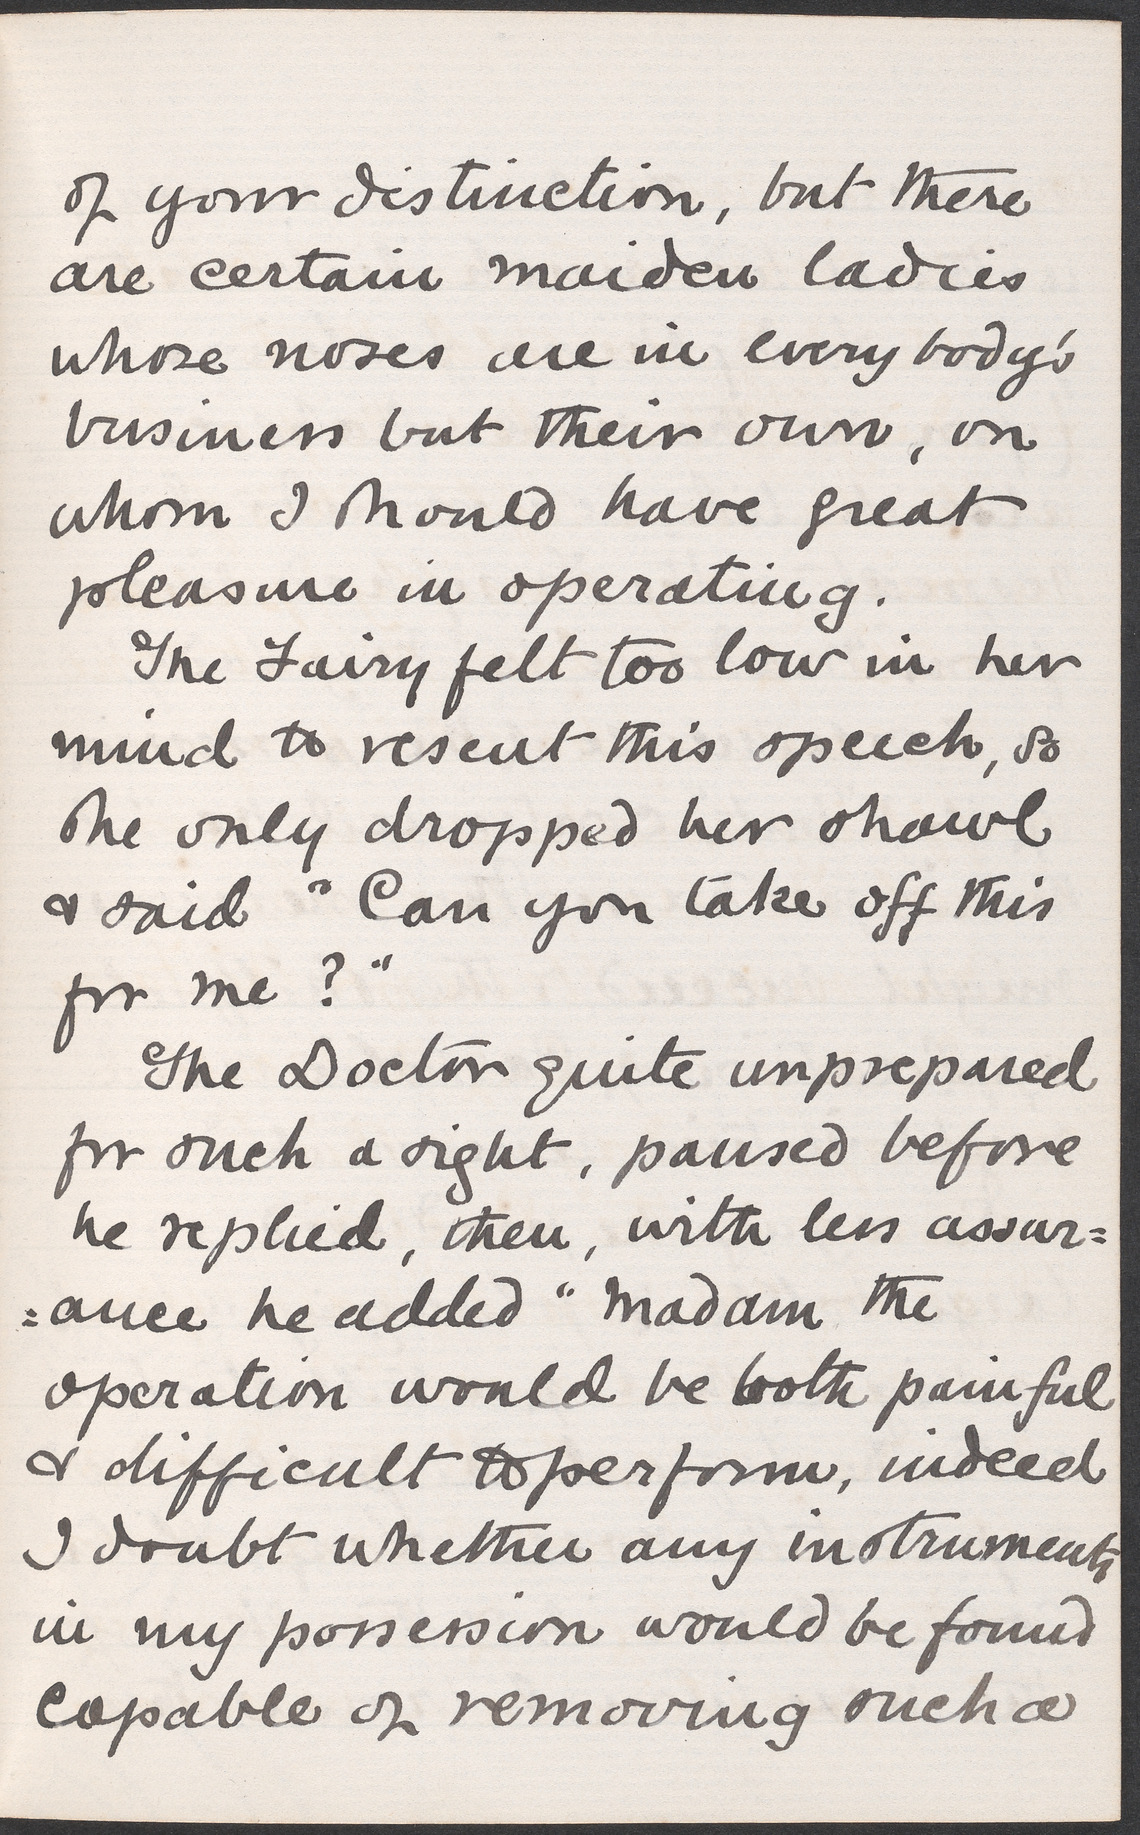 of your distinction, but there
are certain maiden ladies
whose noses are in every body's
business but their own, on
whom I should have great
pleasure in operating.
The Fairy felt too low in her
mind to resent this speech, so
she only dropped her shawl
& said "Can you take off this
for me?"
The Doctor quite unprepared
for such a sight, paused before
he replied, then, with less assur=
=ance he added "Madam the
operation would be both painful
& difficult to perform, indeed
I doubt whether any instruments
in my possession would be found
capable of removing such a